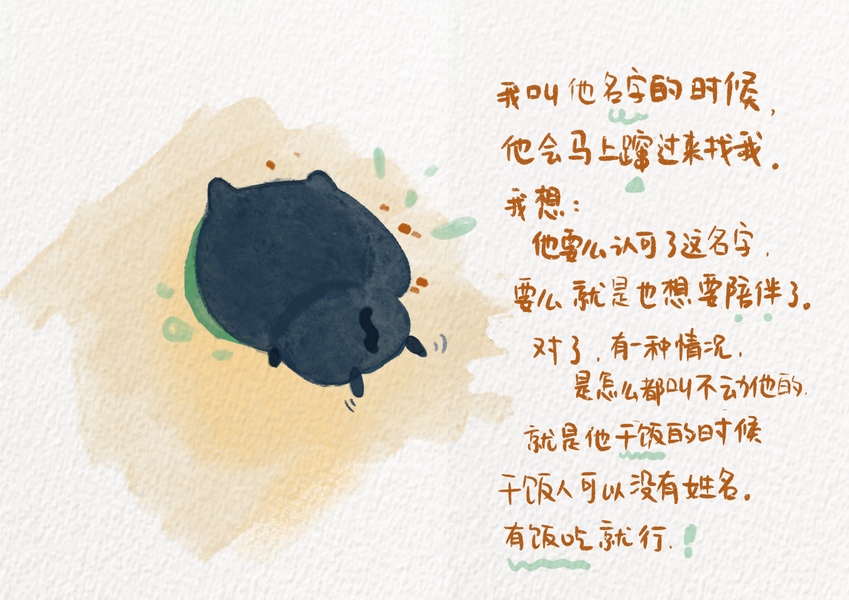 我叫他名字的时候,
他会马上蹿过来找我。
我想:
他要么认可了这名字,
要么就是也想要陪伴了。
对了,有一种情况,
是怎么都叫不动他的.
就是他干饭的时候
干饭人可以没有姓名。
有饭吃就行.!